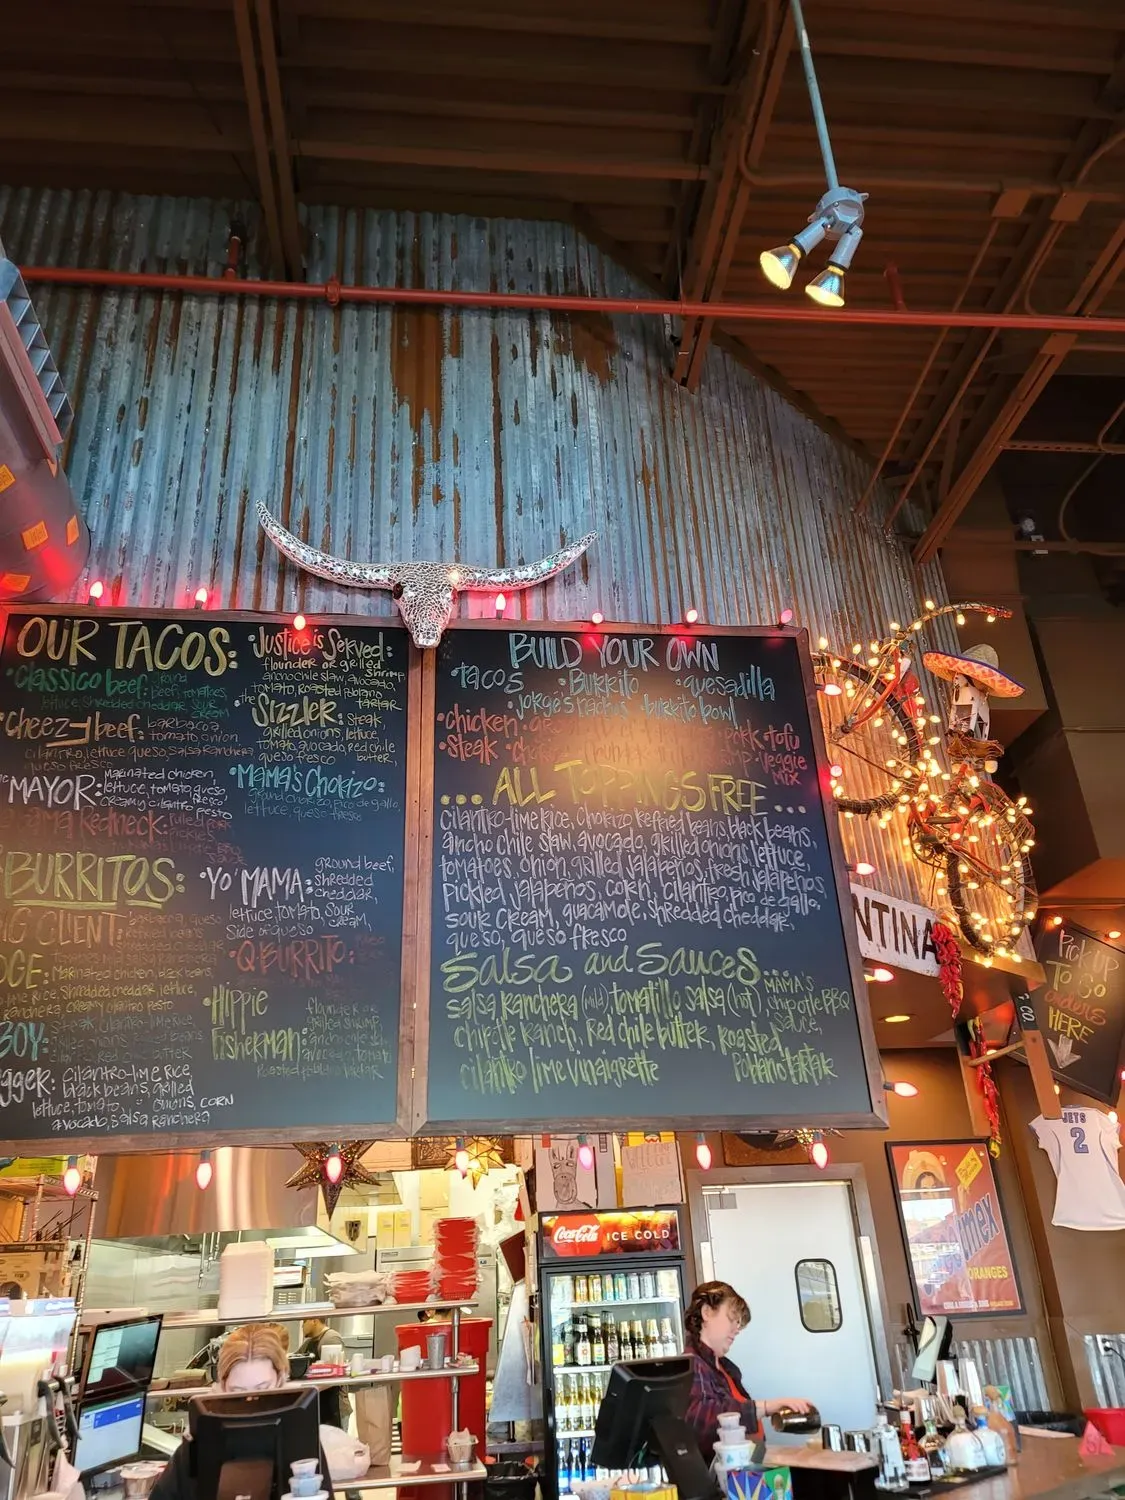 OUR TACOS:
•Classico beef: ground
beef, tomatoes,
lettuce, shredded cheddar, sour
cream
•Cheezy beef: barbacoa,
tomato, onion
cilantro, lettuce, queso, salsa ranchera
queso fresco
MAYOR: Marinated chicken,
lettuce, tomato, queso
fresco
creamy cilantro pesto
Mama Redneck: Pulled pork
pickles
BBQ
sauce
•Justice is Served:
flounder or grilled
shrimp
ancho chile slaw, avocado,
tomato, roasted poblano
tartar
•the Sizzler: steak,
grilled onions, lettuce,
tomato, avocado, red chile
butter,
queso fresco
•Mama's Chorizo:
ground chorizo, pico de gallo,
lettuce, queso fresco
BURRITOS:
BIG CLIENT: barbacoa, queso
refried beans
shredded cheddar
Marinated chicken, black beans,
rice, shredded cheddar, lettuce,
ranchera, creamy cilantro pesto
BOY: steak, cilantro-lime rice,
grilled onions, refried beans
cilantro-lime rice,
black beans, grilled
onions, corn
lettuce, tomato,
avocado, salsa ranchera
•YO' MAMA: ground beef,
shredded
cheddar,
lettuce, tomato, sour
cream,
side of queso
•Q-BURRITO:
•Hippie
Fisherman: flounder or
grilled shrimp,
ancho chile slaw
avocado, tomato
roasted poblano tartar
BUILD YOUR OWN
•tacos •Burrito •quesadilla
Jorge's nachos •burrito bowl
•chicken •pork •tofu
•steak •veggie
mix
... ALL TOPPINGS FREE ...
cilantro-lime rice, chorizo refried beans, black beans,
ancho chile slaw, avocado, grilled onions, lettuce,
tomatoes, onion, grilled jalapeños, fresh jalapeños
pickled jalapeños, corn, cilantro, pico de gallo,
sour cream, guacamole, shredded cheddar,
queso, queso fresco
Salsa and Sauces...
salsa ranchera (mild), tomatillo salsa (hot), MAMA'S
chipotle BBQ
sauce,
chipotle ranch, red chile butter, roasted
poblano tartar
cilantro lime vinaigrette
NTINA
Pick up
To Go
orders
HERE
JETS
2
Coca-Cola ICE COLD
ORANGES